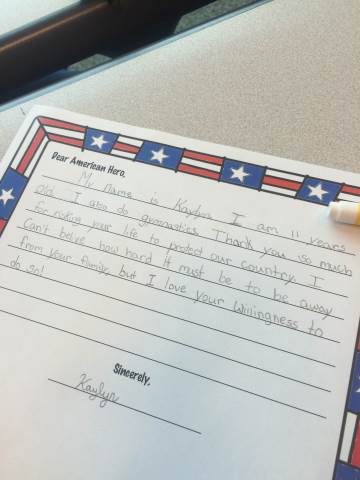 Dear American Hero,
My name is Kaylyn I am 11 years
old. I also do gymnastics. Thank you so much
for risking your life to protect our country. I
Can't belive how hard it must be to be away
from your family, but I love your Willingness to
do so!
Sincerely,
Kaylyn